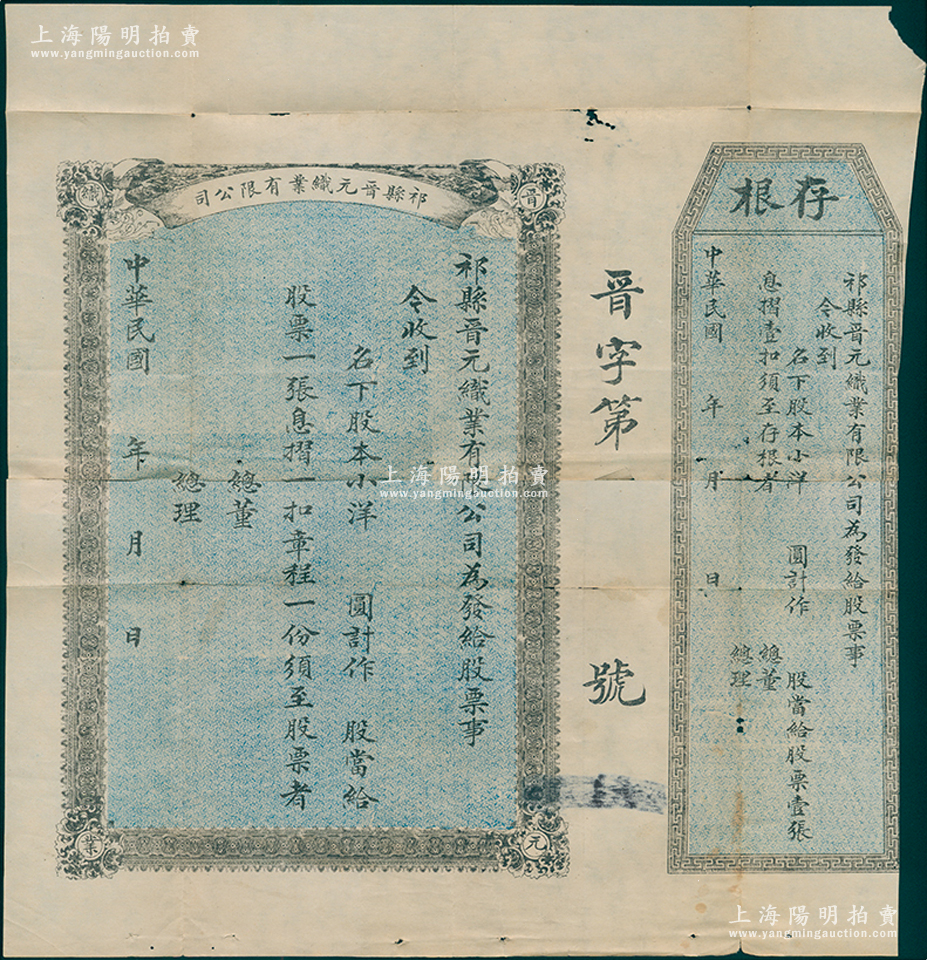 上海陽明拍賣
www.yangmingauction.com
存根
祁縣晉元織業有限公司為發給股票事
令收到
名下股本小洋 圓計作 股當給股票壹張
息摺壹扣須至存根者
總董
總理
中華民國 年 月 日
晉字第 號
祁縣晉元織業有限公司
晉
元
織
業
祁縣晉元織業有限公司為發給股票事
令收到
名下股本小洋 圓計作 股當給
股票一張息摺一扣章程一份須至股票者
總董
總理
中華民國 年 月 日
上海陽明拍賣
www.yangmingauction.com
上海陽明拍賣
www.yangmingauction.com